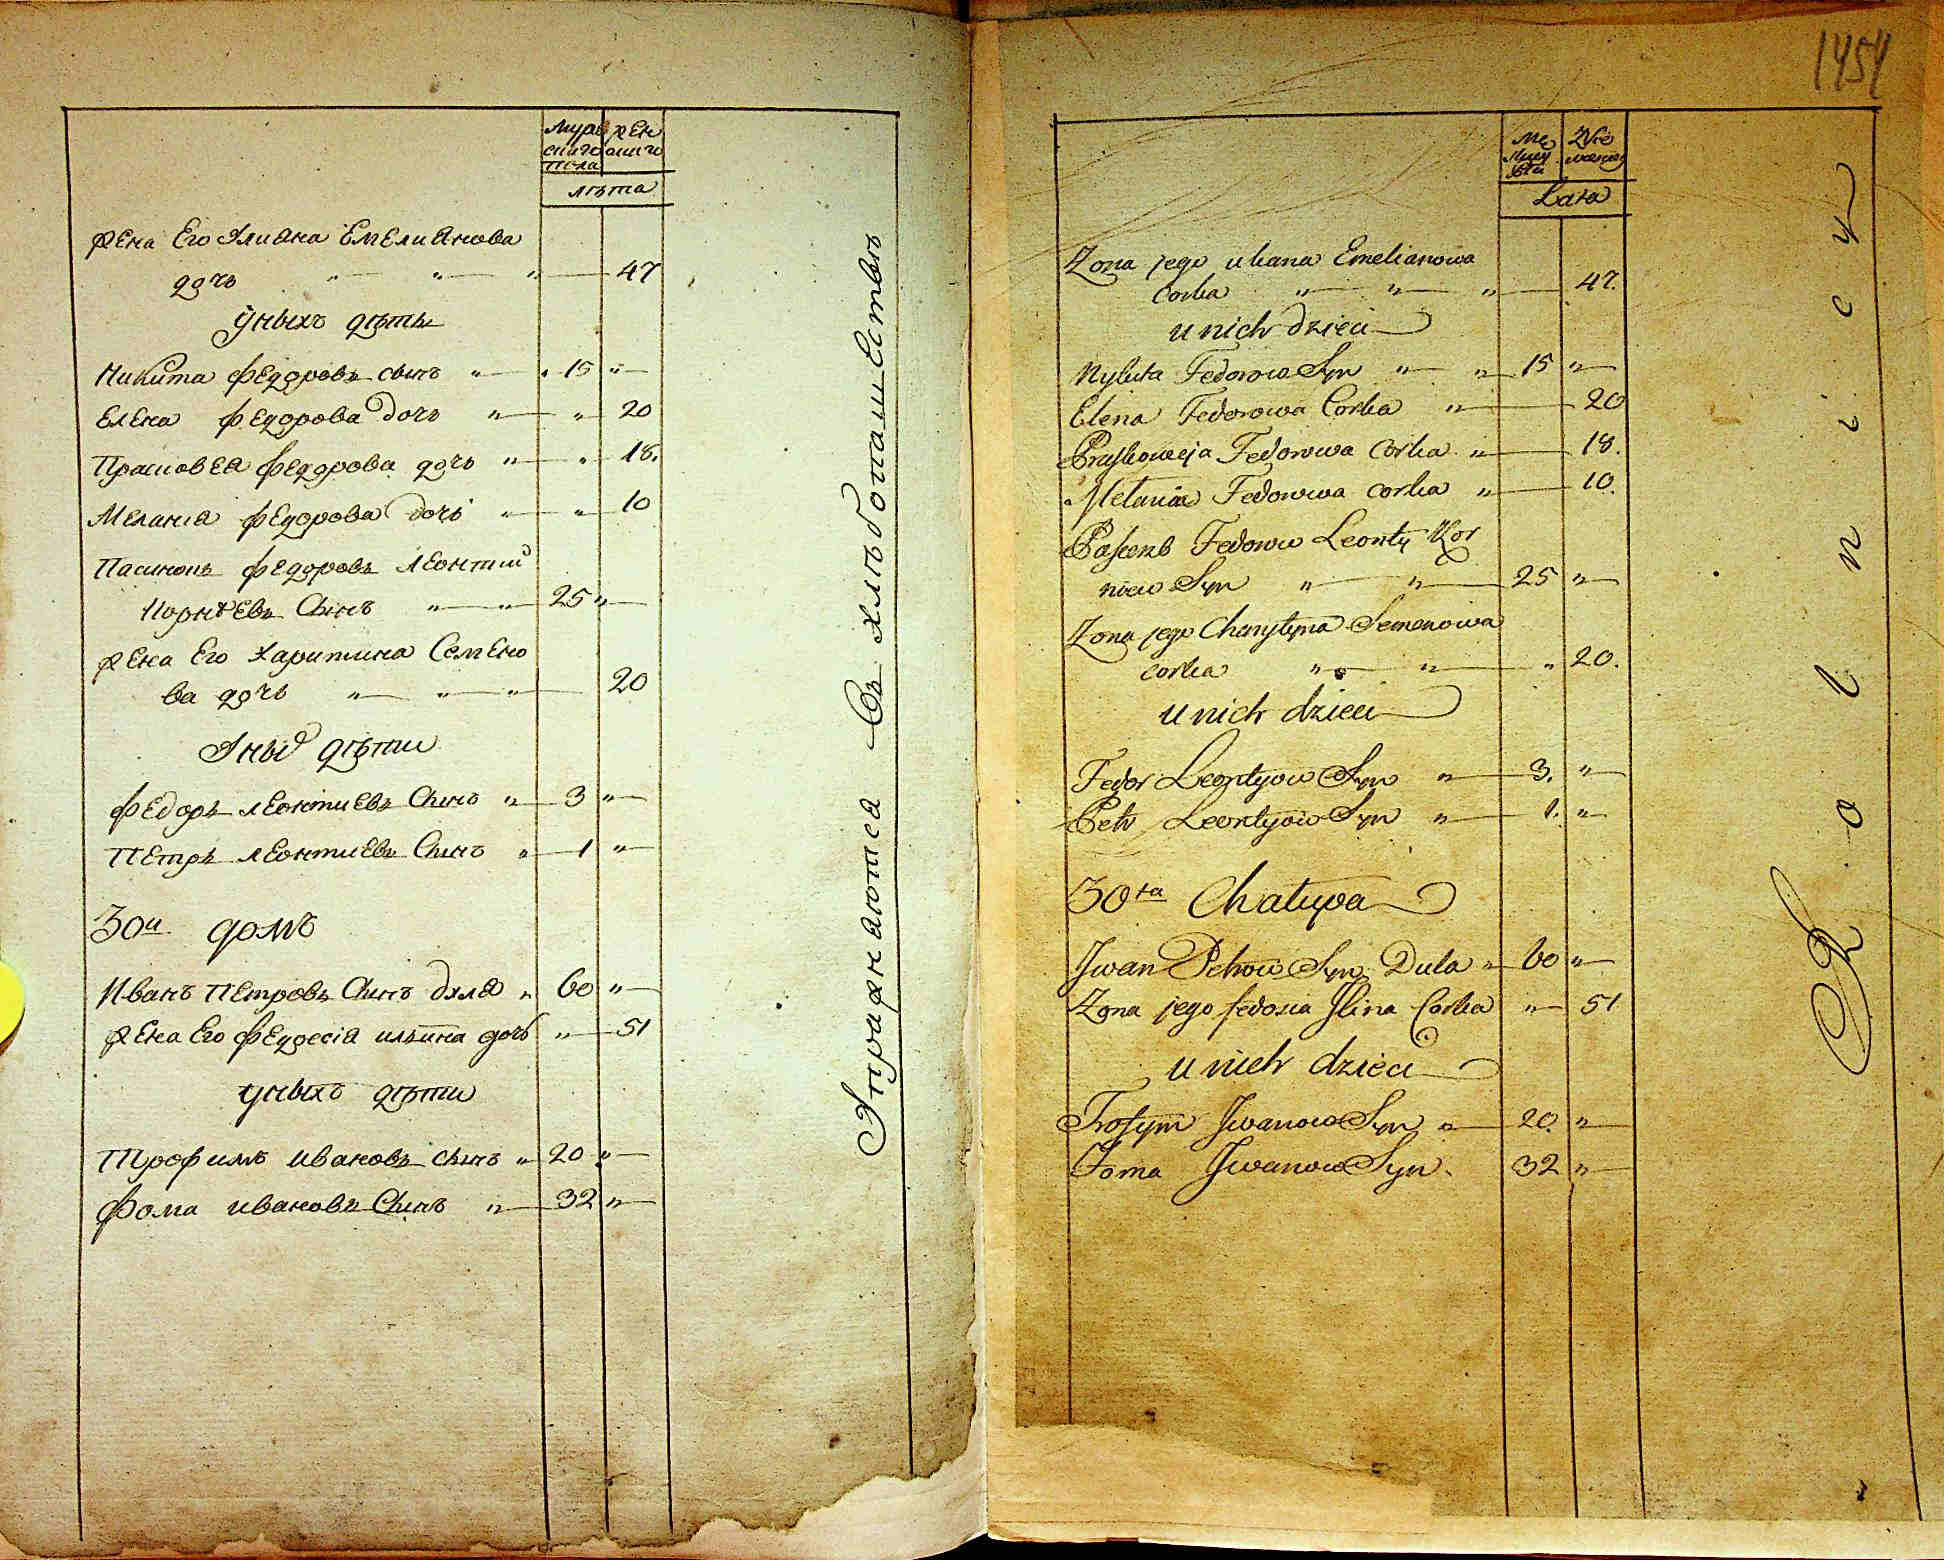 Мужескаго пола
женскаго
лѣта
жена Его Улияна Емелиянова
дочь " " " 47
Уныхъ дѣти
Никита Федоровъ сынъ " " 15 "
Елена Федорова дочь " " 20
Прасковея Федорова дочь " " 18.
Меланія Федорова дочь " " 10
Пасинокъ Федоровъ Леонтий
Корнѣевъ Сынъ " " 25 "
жена Его Харитина Семено
ва дочь " " " 20
Уныхъ дѣти
Федоръ леонтиевъ Сынъ " 3 "
Петръ леонтиевъ Сынъ " 1 "
30й домъ
Иванъ Петровъ Сынъ дуля " 60 "
жена Его Федосія ильина дочь " 51
уныхъ дѣти
Трофимъ ивановъ сынъ " 20 "
Фома ивановъ Сынъ " 32 "
Упражняются Въ хлѣбопашествѣ
1454
Męskiey
Lata
Zona jego uliana Emelianowa
corka " " " 47.
u nich dzieci
Nykita Fedorow Syn " " 15 "
Elena Fedorowa Corka " 20
Praskoweja Fedorowa corka " 18.
Melania Fedorowa corka " 10.
Pasenb Fedorow Leonty Kor
niew Syn " " 25 "
Zona jego Charytyna Semenowa
corka " " " 20.
u nich dzieci
Fedor Leontyow Syn " 3. "
Petr Leontyow Syn " 1. "
30ta Chałupa
Jwan Petrow Syn Dula " 60 "
Zona jego fedosia Jlina Corka " 51
u nich dzieci
Trofym Jwanow Syn " 20. "
Foma Jwanow Syn. 32 "
Rolnicy